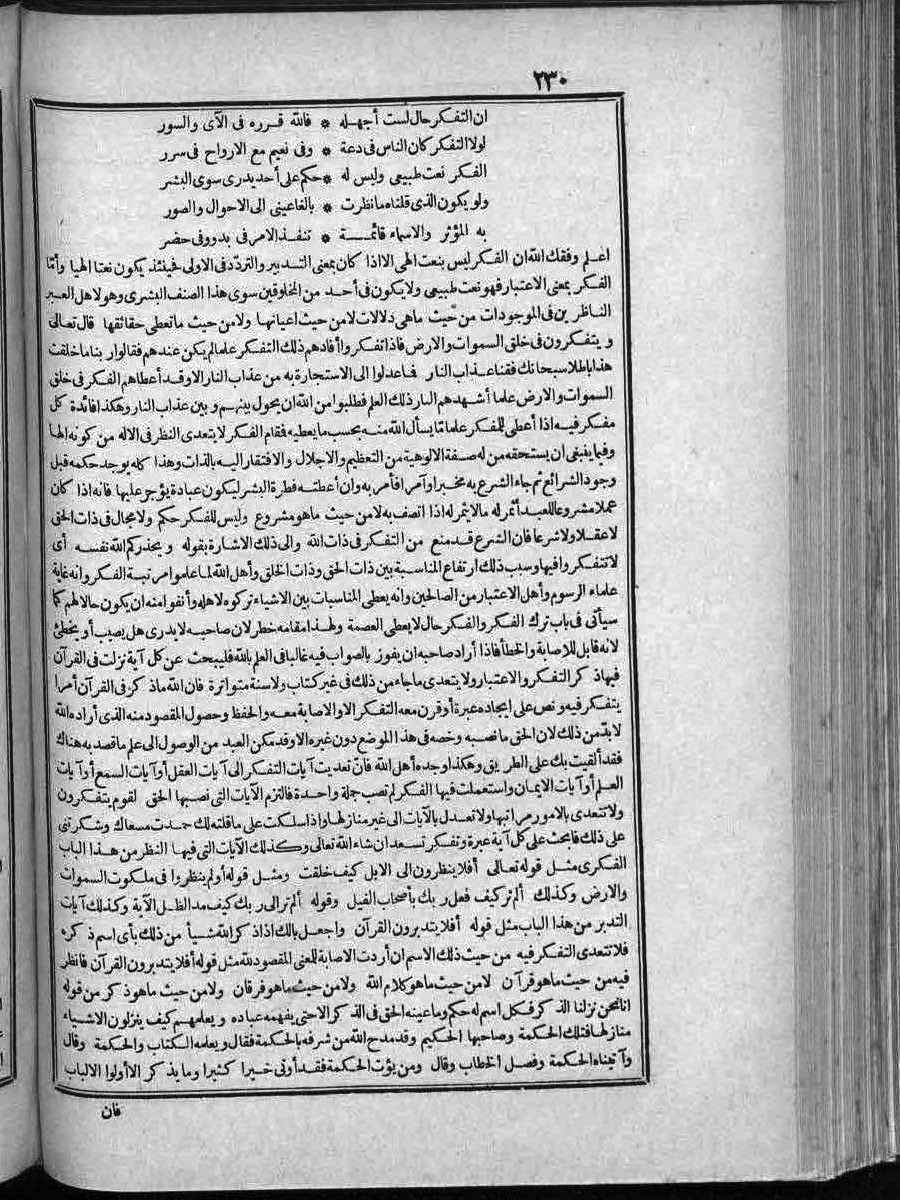 ٢٣٠
ان التفكر حال لست أجهله * فالله قرره فى الآى والسور
لولا التفكر كان الناس فى دعة * وفى نعيم مع الارواح فى سرر
الفكر نعت طبيعى وليس له * حكم على أحد يدرى سوى البشر
ولو يكون الذى قلناه ما نظرت * بالفاعينى الى الاحوال والصور
به المؤثر والاسماء قائمة * تنفذ الامر فى بدو وفى حضر
اعلم وفقك الله ان الفكر ليس بنعت الهى الا اذا كان بمعنى التدبير والتردّد فى الاولى فحينئذ يكون نعتا الهيا وأمّا
الفكر بمعنى الاعتبار فهو نعت طبيعى ولا يكون فى أحد من المخلوقين سوى هذا الصنف البشرى وهو لاهل العبر
الناظرين فى الموجودات من حيث ماهى دلالات لا من حيث اعيانها ولا من حيث ما تعطى حقائقها قال تعالى
ويتفكرون فى خلق السموات والارض فاذا تفكر وا أفادهم ذلك التفكر علما لم يكن عندهم فقالوا ربنا ما خلقت
هذا باطلا سبحانك فقنا عذاب النار فاعدلوا الى الاستجارة به من عذاب النار الا وقد أعطاهم الفكر فى خلق
السموات والارض علما أشهدهم النار ذلك العلم فطلبوا من الله ان يحول بينهم وبين عذاب النار وهكذا فائدة كل
مفكر فيه اذا أعطى للمفكر علما مّا يسأل الله منه بحسب ما يعطيه فمقام الفكر لا يتعدى النظر فى الاله من كونه الها
وفيما ينبغى ان يستحقه من له صفة الالوهية من التعظيم والاجلال والافتقار اليه بالذات وهذا كله يوجد حكمه قبل
وجود الشرائع ثم جاء الشرع به مخبرا وآمرا فأمر به وان أعطته فطرة البشر ليكون عبادة يؤجر عليها فانه اذا كان
عملا مشروعا للعبد أثمر له ما لا يثمر له اذا اتصف به لا من حيث ماهو مشروع وليس للفكر حكم ولا مجال فى ذات الحق
لا عقلا ولا شرعا فان الشرع قد منع من التفكر فى ذات الله والى ذلك الاشارة بقوله ويحذركم الله نفسه أى
لا تتفكر وا فيها وسبب ذلك ارتفاع المناسبة بين ذات الحق وذات الخلق وأهل الله لما علموا مرتبة الفكر وانه غاية
علماء الرسوم وأهل الاعتبار من الصالحين وانه يعطى المناسبات بين الاشياء تركوه لاهله وأنفوا منه ان يكون حالا لهم كما
سيأتى فى باب ترك الفكر والفكر حال لا يعطى العصمة ولهذا مقامه خطر لان صاحبه لا يدرى هل يصيب أو يخطئ
لانه قابل للاصابة والخطأ فاذا أراد صاحبه ان يفوز بالصواب فيه غالبا فى العلم بالله فليبحث عن كل آية نزلت فى القرآن
فيها ذكر التفكر والاعتبار ولا يتعدى ما جاء من ذلك فى غير كتاب ولا سنة متواترة فان الله ما ذكر فى القرآن أمرا
يتفكر فيه ونص على ايجاده عبرة أو قرن معه التفكر الا والاصابة معه والحفظ وحصول المقصود منه الذى أراده الله
لا بدّ من ذلك لان الحق ما نصبه وخصه فى هذا الموضع دون غيره الا وقد مكن العبد من الوصول الى علم ما قصد به هناك
فقد ألقيت بك على الطريق وهكذا وجده أهل الله فان تعديت آيات التفكر الى آيات العقل أو آيات السمع أو آيات
العلم أو آيات الايمان واستعملت فيها الفكر لم تصب جملة واحدة فالتزم الآيات التى نصبها الحق لقوم يتفكرون
ولا تتعدى بالامور مراتبها ولا تعدل بالآيات الى غير منازلها واذا سلكت على ما قلته لك حمدت مسعاك وشكرتنى
على ذلك فابحث على كل آية عبرة وتفكر تسعد ان شاء الله تعالى وكذلك الآيات التى فيها النظر من هذا الباب
الفكرى مثل قوله تعالى أفلا ينظرون الى الابل كيف خلقت ومثل قوله أولم ينظروا فى ملكوت السموات
والارض وكذلك ألم تر كيف فعل ربك بأصحاب الفيل وقوله ألم تر الى ربك كيف مد الظل الآية وكذلك آيات
التدبر من هذا الباب مثل قوله أفلا يتدبرون القرآن واجعل بالك اذا ذكر الله شيأ من ذلك بأى اسم ذكره
فلا تتعدى التفكر فيه من حيث ذلك الاسم ان أردت الاصابة للمعنى المقصود لله مثل قوله أفلا يتدبرون القرآن فانظر
فيه من حيث ماهو قرآن لا من حيث ماهو كلام الله ولا من حيث ماهو فرقان ولا من حيث ماهو ذكر من قوله
انا نحن نزلنا الذكر فكل اسم له حكم وما عينه الحق فى الذكر الا حتى يفهمه عباده ويعلمهم كيف ينزلون الاشياء
منازلها فتلك الحكمة وصاحبها الحكيم وقد مدح الله من شرفه بالحكمة فقال ويعلمه الكتاب والحكمة وقال
وآتيناه الحكمة وفصل الخطاب وقال ومن يؤت الحكمة فقد أوتى خيرا كثيرا وما يذكر الا أولوا الالباب
فان